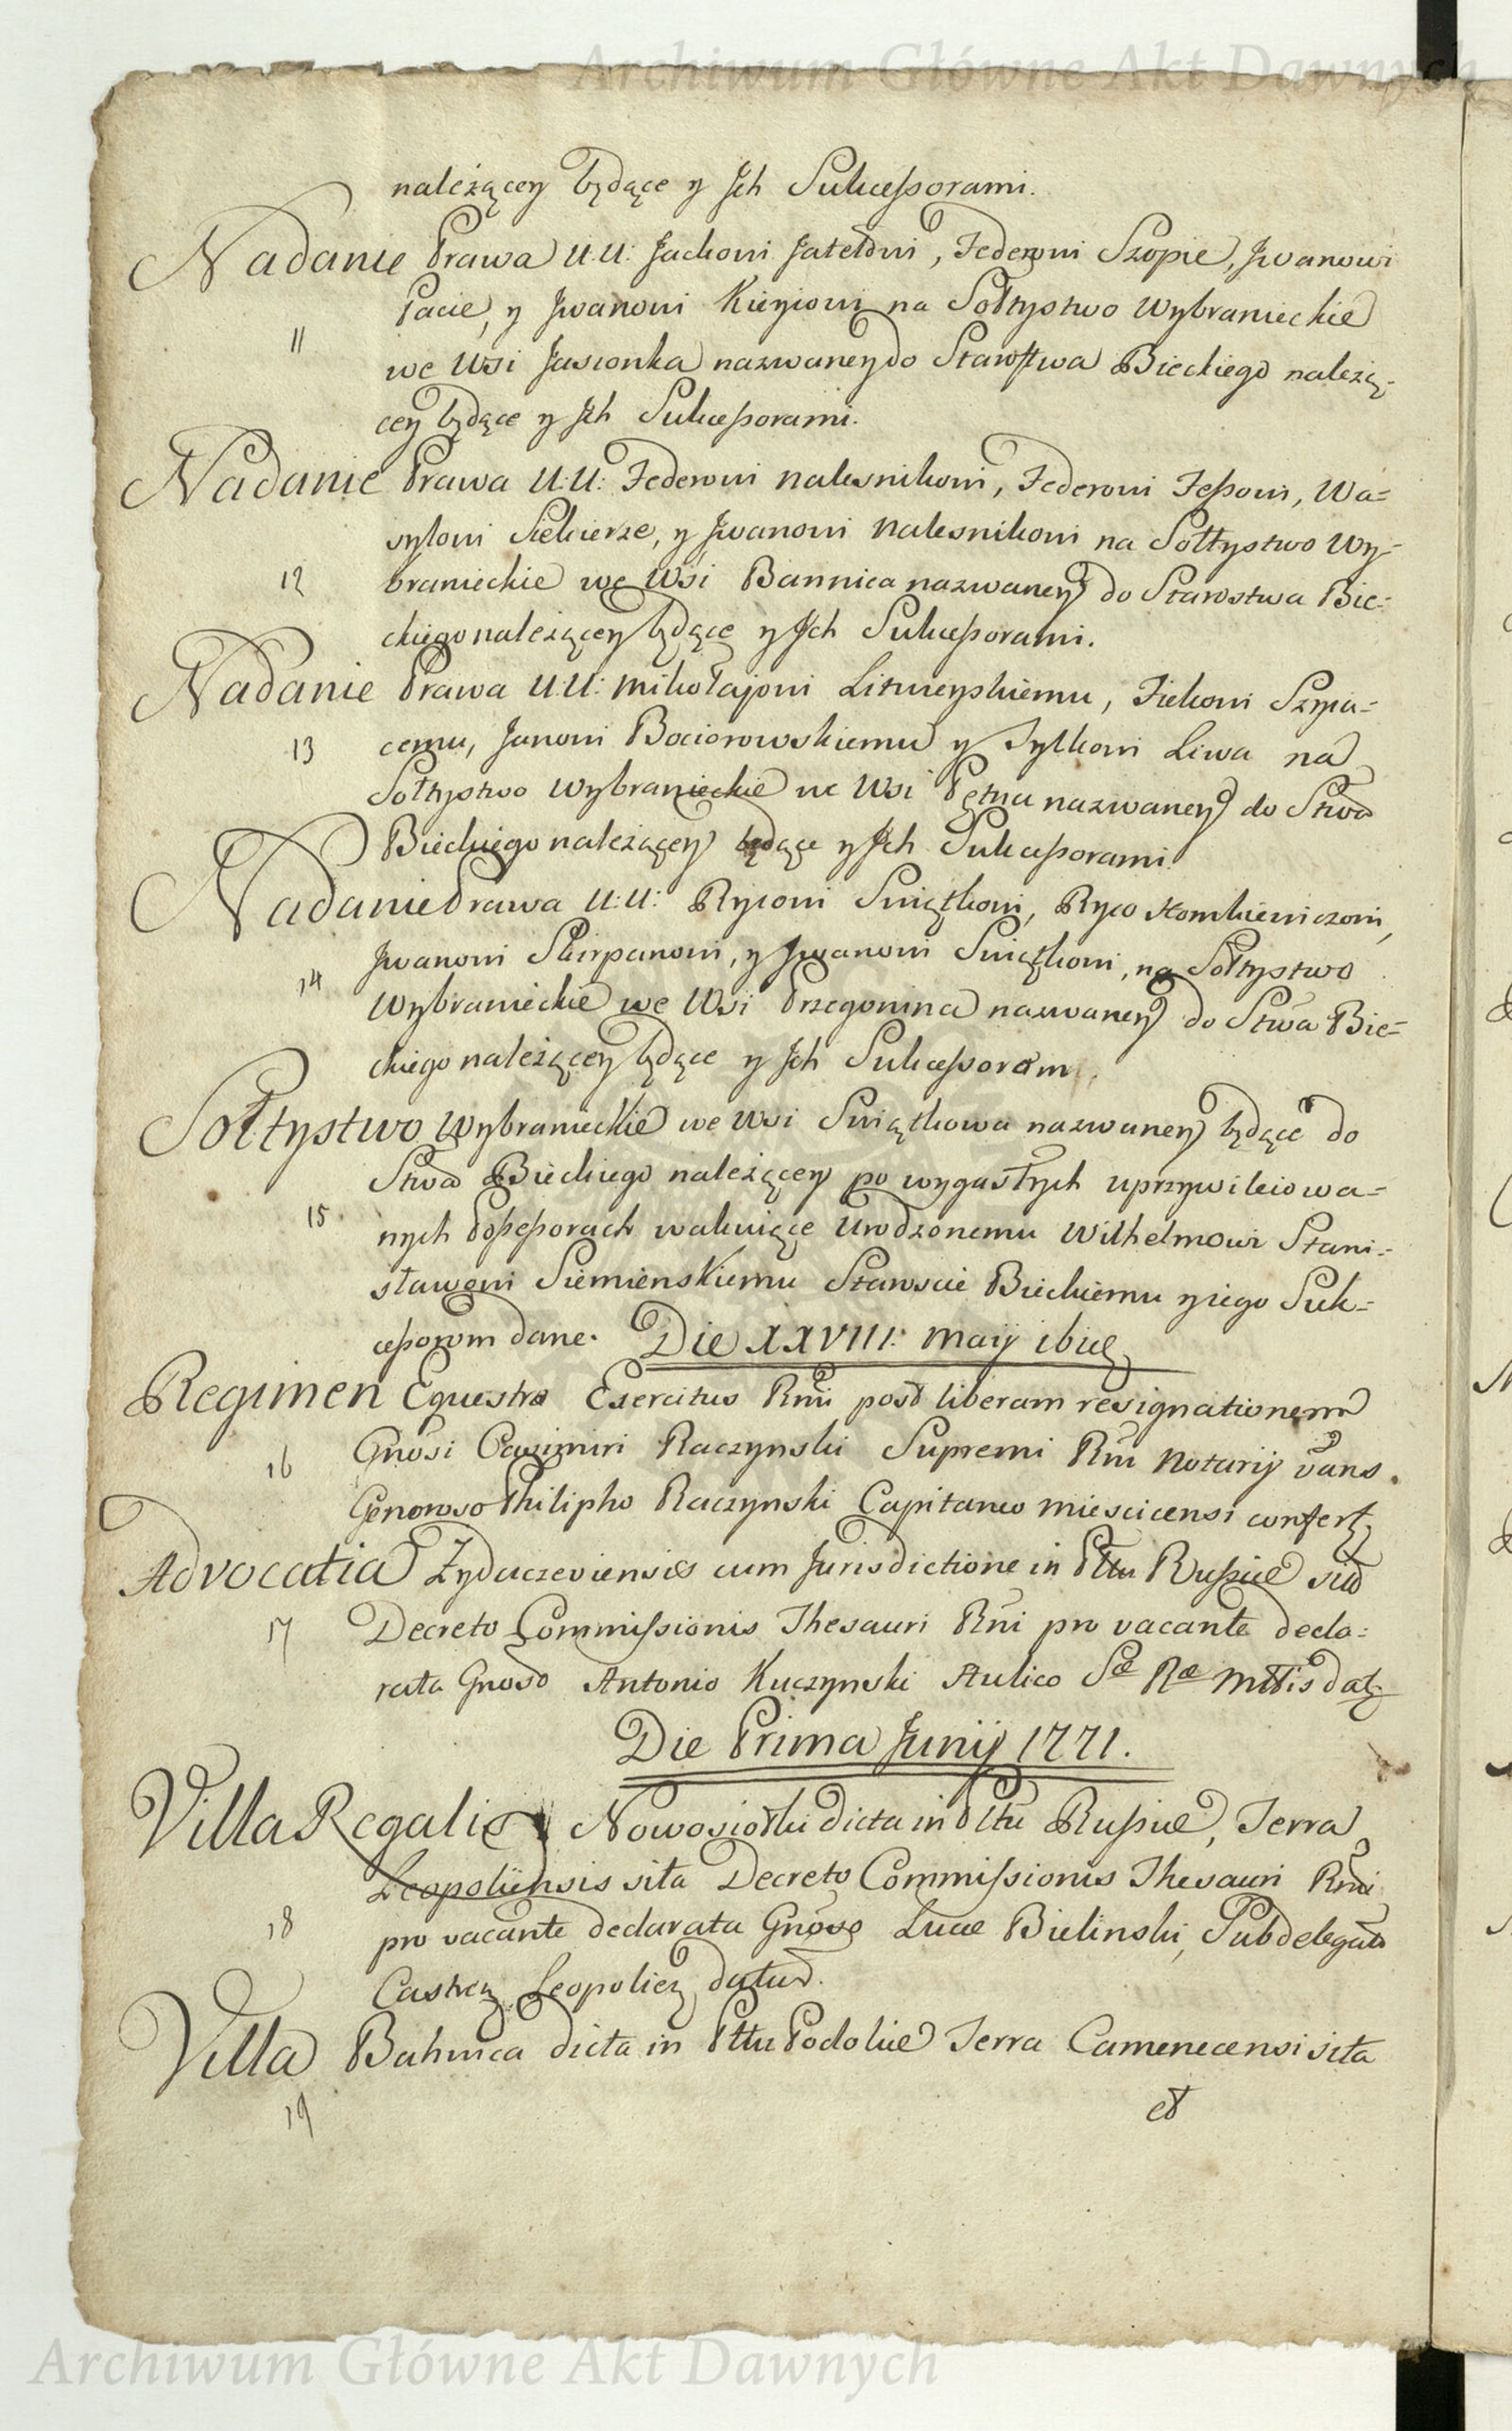 Archiwum Główne Akt Dawnych
należącey będące y Jch Sukceßorami.
Nadanie Prawa U:U: Jackowi Jatełowi, Federowi Szopie, Jwanowi
Pacie, y Jwanowi Kieyiowi na Sołtystwo Wybranieckie
11
we Wsi Jasionka nazwaney do Starostwa Bieckiego należą-
cey będące y Jch Sukceßorami.
Nadanie Prawa U:U: Federowi Nalesnikowi, Federowi Feßowi, Wa=
sylowi Siekierze, y Jwanowi Nalesnikowi na Sołtystwo Wy-
12 branieckie we Wsi Bannica nazwaney do Starostwa Bie-
ckiego należącey będące y Jch Sukceßorami.
Nadanie Prawa U:U: Mikołajowi Litweyskiemu, Fiekowi
13 cemu, Janowi Bociorowskiemu y Sylkowi Liwa na
Sołtystwo Wybranieckie we Wsi Pętna nazwaney do Stwa
Bieckiego należącey będące y Jch Sukceßorami.
Nadanie Prawa U:U: Rycowi Swiątkowi, Ryco Homkiewiczowi,
Jwanowi Skirpanowi, y Jwanowi Swiątkowi, na Sołtystwo
14
Wybranieckie we Wsi Przegonina nazwaney do Stwa Bie=
ckiego należącey będące y Jch Sukceßoram
Sołtystwo Wybranieckie we Wsi Swiątkowa nazwaney będące do
Stwa Bieckiego należącey po wygasłych uprzywileiowa=
15. nych Poßeßorach wakuiące Urodzonemu Wilhelmowi Stani-
sławowi Siemienskiemu Staroscie Bieckiemu y iego Suk=
ceßorom dane. Die XXVIII. Maij ibid
Regimen Equestre Exercitus Rni post liberam resignationem
16 Gnosi Casimiri Raczynski Supremi Rni Notarij vans.
Generoso Philipho Raczynski Capitaneo Miescicensi confert
Advocatia Zydaczeviensis cum Jurisdictione in Pttu Rußiæ sita
17 Decreto Commißionis Thesauri Rni pro vacante decla=
rata Gnoso Antonio Kuczynski Aulico Sæ Ræ Mttis dat
Die Prima Junij 1771.
Villa Regalis Nowosiołki dicta in Pttu Rußiæ, Terra
Leopoliensis sita Decreto Commißionis Thesauri Rni
18 pro vacante declarata Gnoso Lucæ Bielinski, Subdelegato
Castren Leopolien datur.
Villa Bahnica dicta in Pttu Podoliæ Terra Camenecensi sita
19 et
Archiwum Główne Akt Dawnych